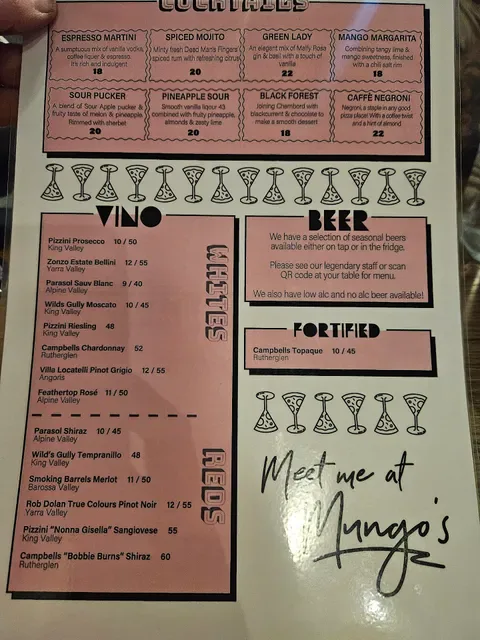 COCKTAILS
ESPRESSO MARTINI
A sumptuous mix of vanilla vodka,
coffee liquer & espresso.
It's rich and indulgent
18
SPICED MOJITO
Minty fresh Dead Man's Fingers
spiced rum with refreshing citrus
20
GREEN LADY
An elegant mix of Malfy Rosa
gin & basil with a touch of
vanilla
22
MANGO MARGARITA
Combining tangy lime &
mango sweetness, finished
with a chilli salt rim
18
SOUR PUCKER
A blend of Sour Apple pucker &
fruity taste of melon & pineapple,
rimmed with sherbet
20
PINEAPPLE SOUR
Smooth vanilla liqour 43
combined with fruity pineapple,
almonds & zesty lime
20
BLACK FOREST
Joining Chambord with
blackcurrent & chocolate to
make a smooth dessert
18
CAFFÈ NEGRONI
Negroni, a staple in any good
pizza place! With a coffee twist
and a hint of almond
22
VINO
WHITES
Pizzini Prosecco 10 / 50
King Valley
Zonzo Estate Bellini 12 / 55
Yarra Valley
Parasol Sauv Blanc 9 / 40
Alpine Valley
Wilds Gully Moscato 10 / 45
King Valley
Pizzini Riesling 48
King Valley
Campbells Chardonnay 52
Rutherglen
Villa Locatelli Pinot Grigio 12 / 55
Angoris
Feathertop Rosé 11 / 50
Alpine Valley
REDS
Parasol Shiraz 10 / 45
Alpine Valley
Wild's Gully Tempranillo 48
King Valley
Smoking Barrels Merlot 11 / 50
Barossa Valley
Rob Dolan True Colours Pinot Noir 12 / 55
Yarra Valley
Pizzini "Nonna Gisella" Sangiovese 55
King Valley
Campbells "Bobbie Burns" Shiraz 60
Rutherglen
BEER
We have a selection of seasonal beers
available either on tap or in the fridge.
Please see our legendary staff or scan
QR code at your table for menu.
We also have low alc and no alc beer available!
FORTIFIED
Campbells Topaque 10 / 45
Rutherglen
Meet me at
Mungo's